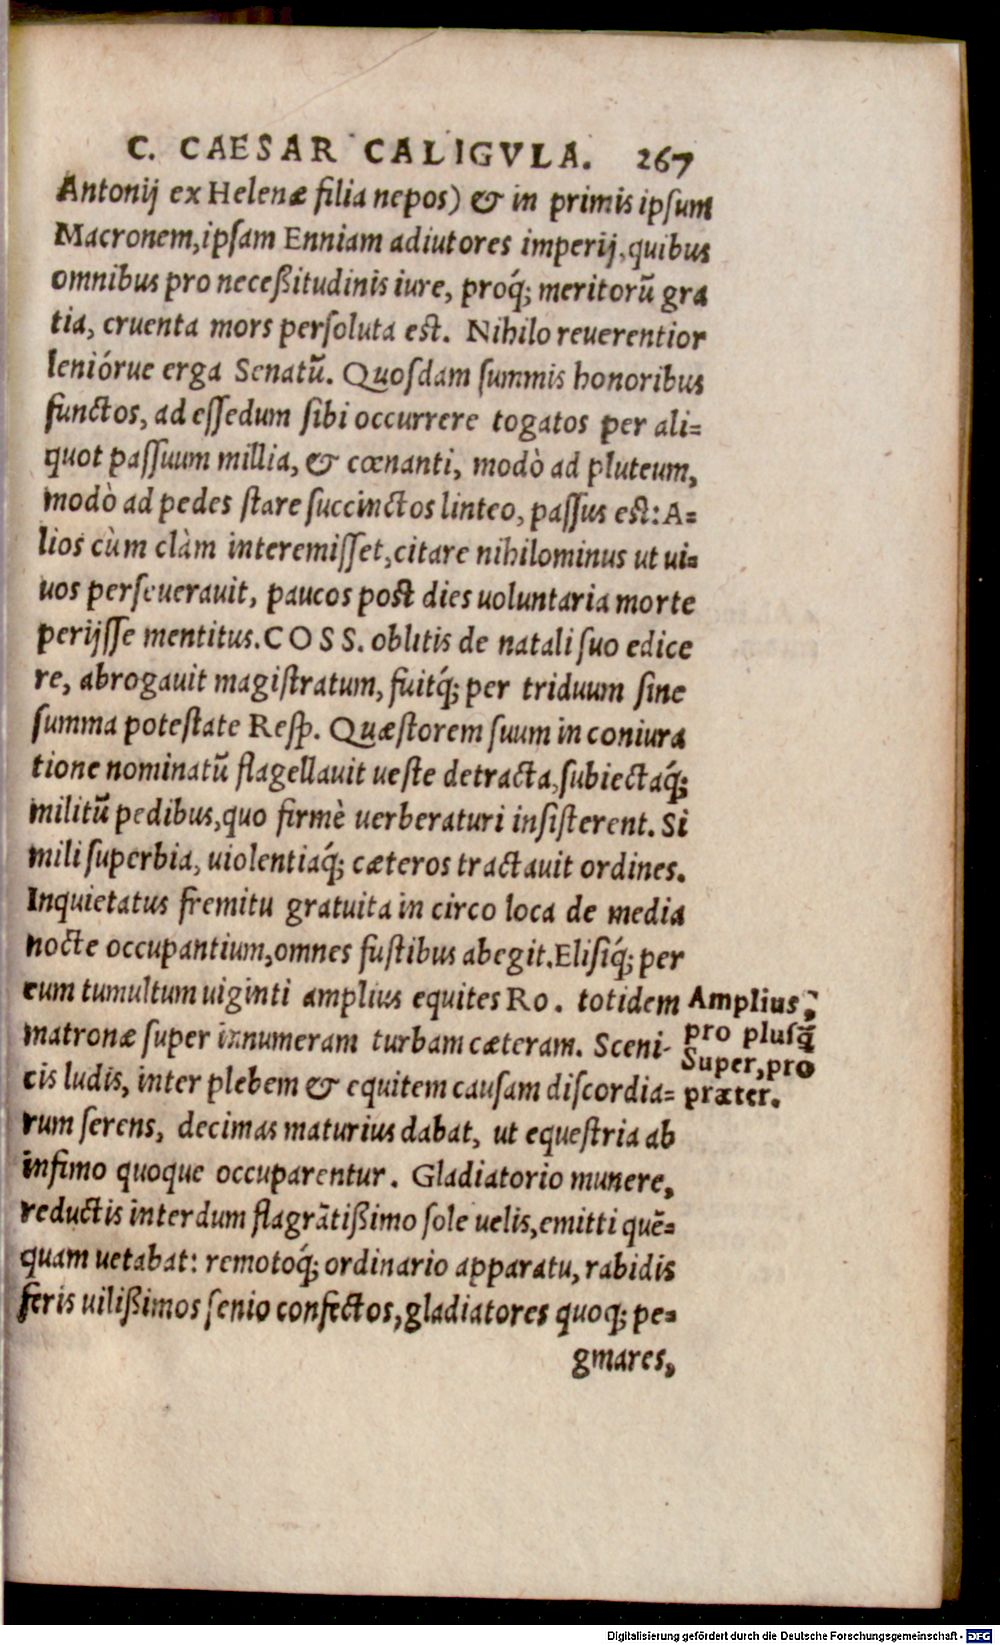 C. CAESAR CALIGVLA. 267
Antonij ex Helenæ filia nepos) & in primis ipsum
Macronem, ipsam Enniam adiutores imperij, quibus
omnibus pro neceßitudinis iure, proq́; meritorũ gra
tia, cruenta mors persoluta est. Nihilo reuerentior
leniórue erga Senatũ. Quosdam summis honoribus
functos, ad essedum sibi occurrere togatos per ali=
quot passuum millia, & cœnanti, modò ad pluteum,
modò ad pedes stare succinctos linteo, passus est: A=
lios cùm clàm interemisset, citare nihilominus ut ui=
uos perseuerauit, paucos post dies uoluntaria morte
perijsse mentitus. COSS. oblitis de natali suo edice
re, abrogauit magistratum, fuitq́; per triduum sine
summa potestate Resp. Quæstorem suum in coniura
tione nominatũ flagellauit ueste detracta, subiectaq́;
militũ pedibus, quo firmè uerberaturi insisterent. Si
mili superbia, uiolentiaq́; cæteros tractauit ordines.
Inquietatus fremitu gratuita in circo loca de media
nocte occupantium, omnes fustibus abegit. Elisiq́; per
eum tumultum uiginti amplius equites Ro. totidem
matronæ super innumeram turbam cæteram. Sceni-
cis ludis, inter plebem & equitem causam discordia=
rum serens, decimas maturius dabat, ut equestria ab
infimo quoque occuparentur. Gladiatorio munere,
reductis interdum flagrãtißimo sole uelis, emitti quẽ=
quam uetabat: remotoq́; ordinario apparatu, rabidis
feris uilißimos senio confectos, gladiatores quoq; pe=
gmares,
Amplius,
pro plusq̃
Super, pro
præter.
Digitalisierung gefördert durch die Deutsche Forschungsgemeinschaft - DFG